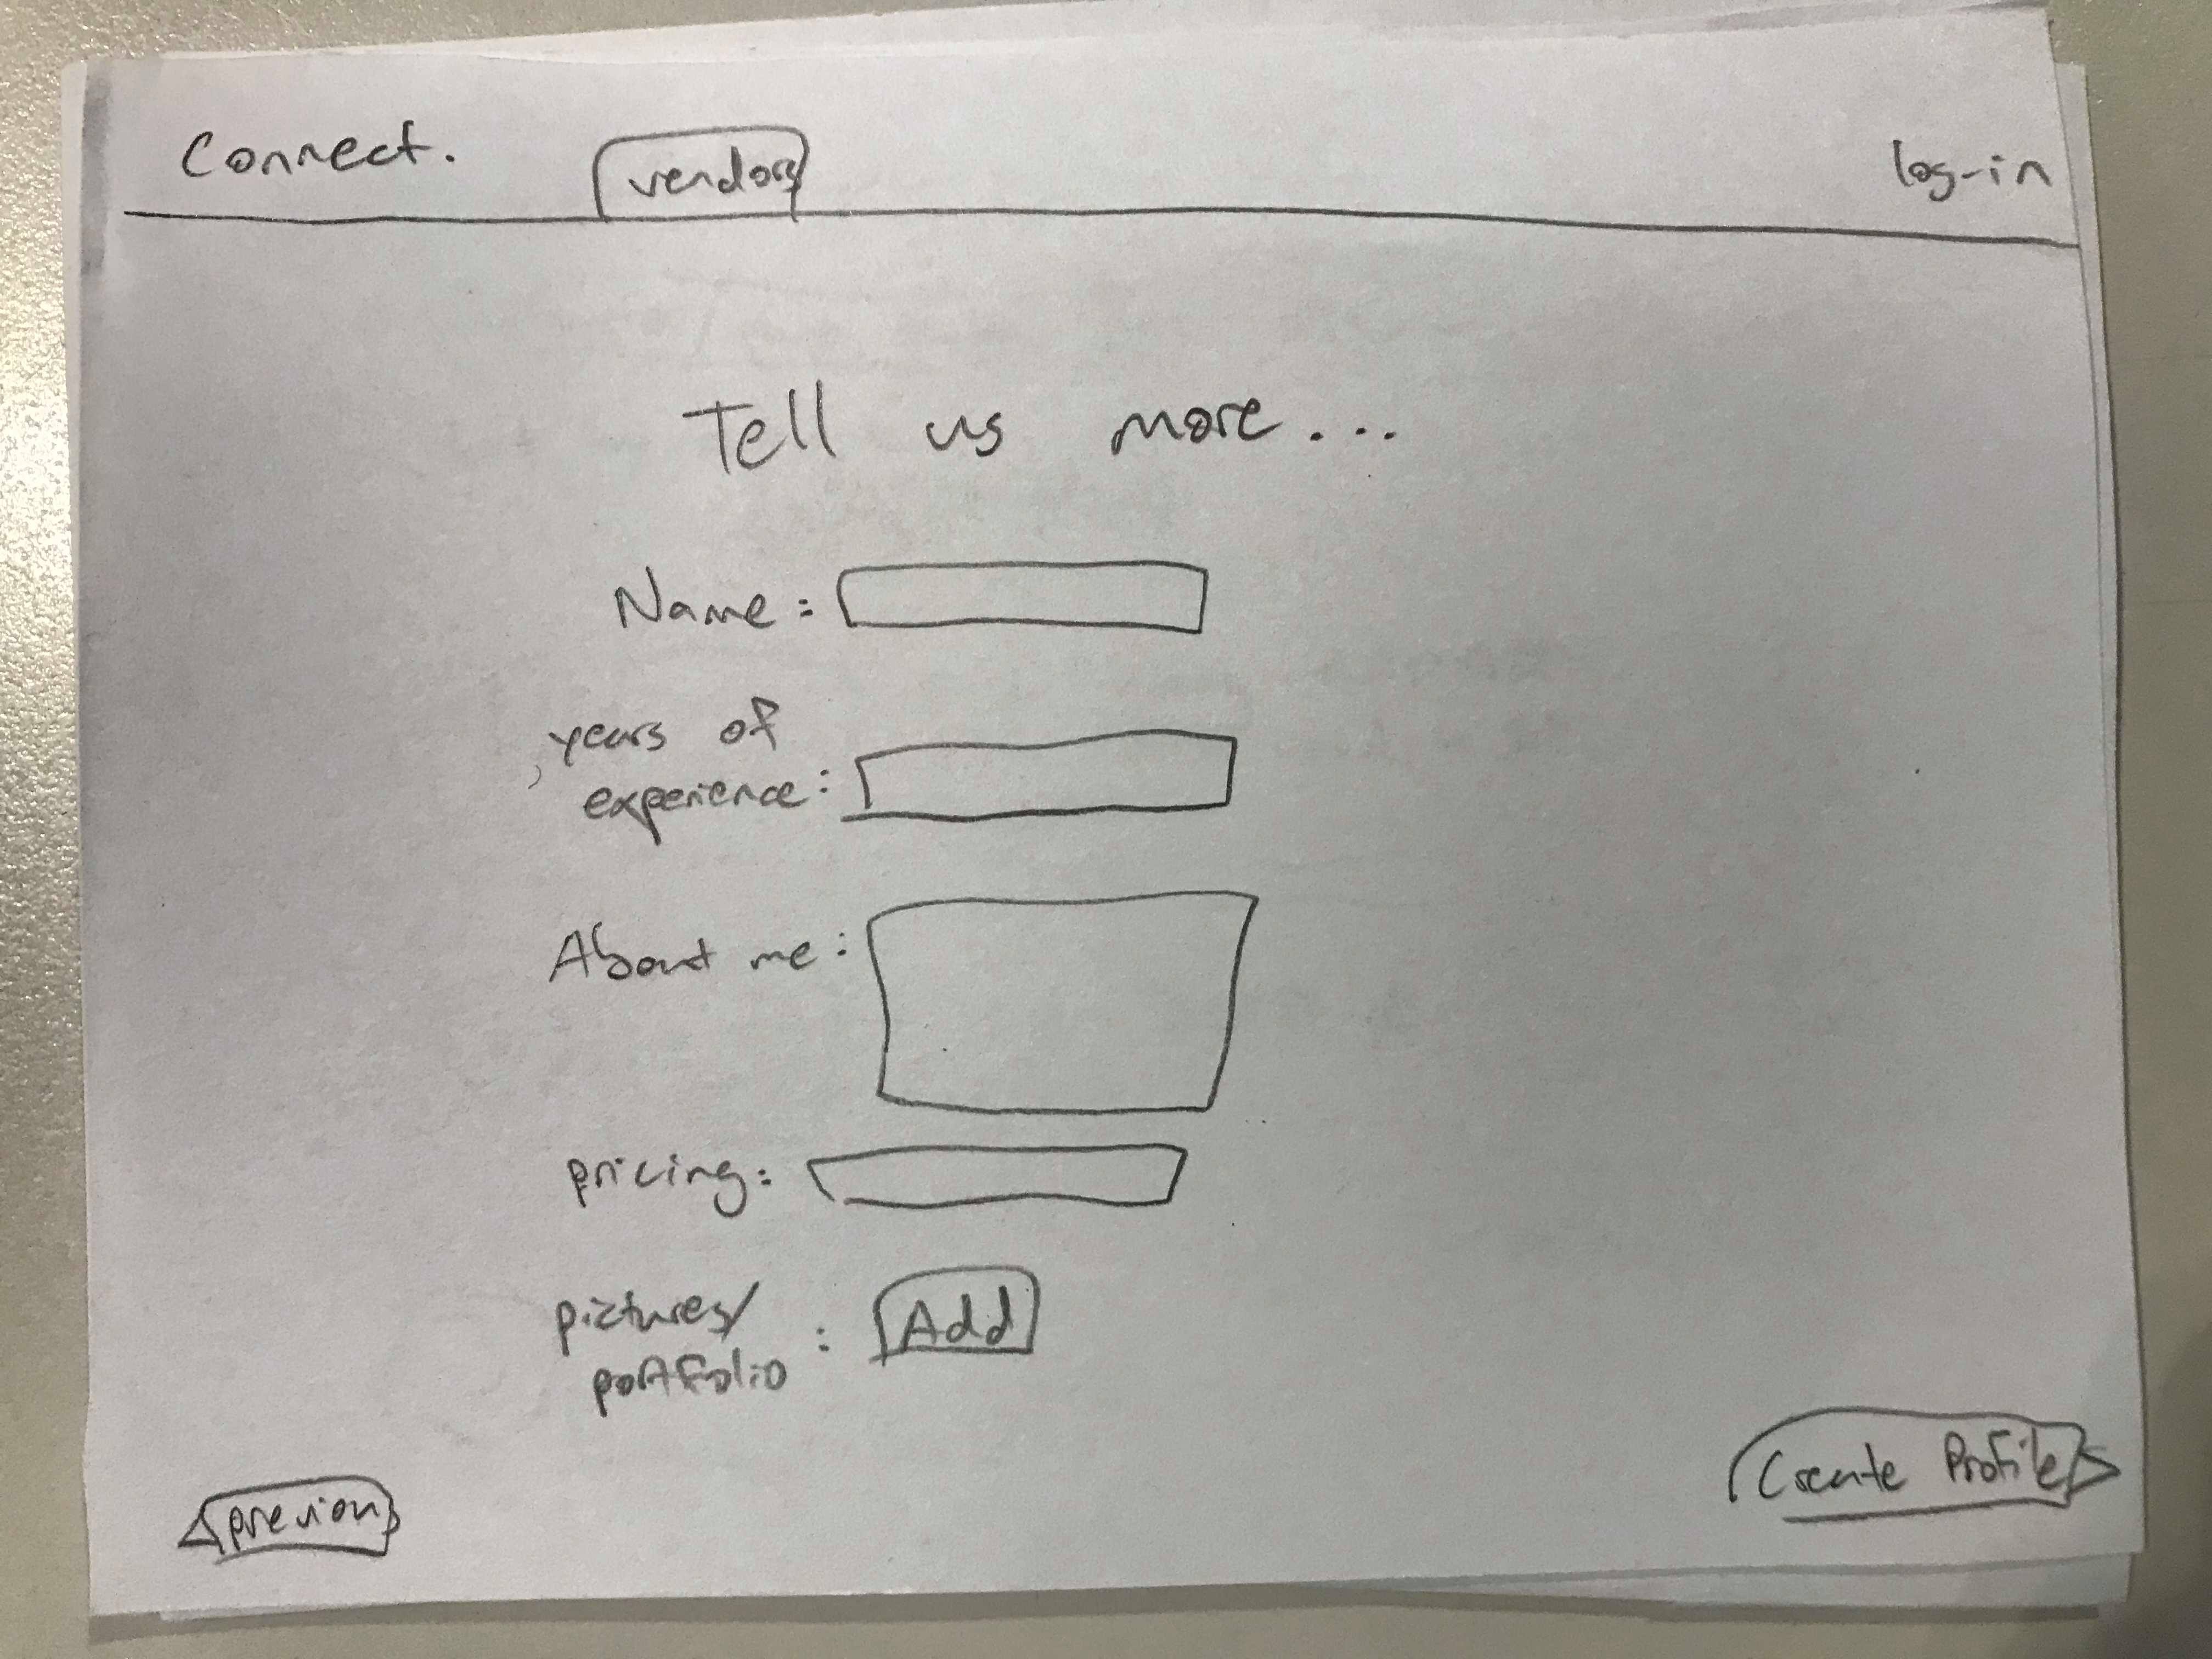 Connect.
vendors
log-in
Tell us more...
Name:
years of
experience:
About me:
pricing:
pictures/
portfolio :
Add
previous
Create Profile